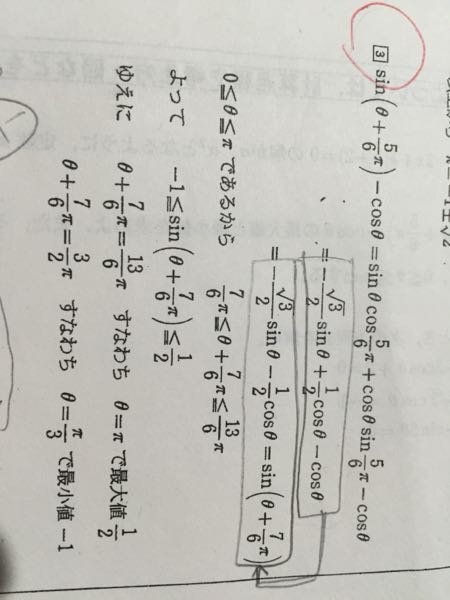 3 sin(θ+5/6π)−cosθ=sinθcos5/6π+cosθsin5/6π−cosθ
=−√3/2sinθ+1/2cosθ−cosθ
=−√3/2sinθ−1/2cosθ=sin(θ+7/6π)
0≦θ≦πであるから 7/6π≦θ+7/6π≦13/6π
よって −1≦sin(θ+7/6π)≦1/2
ゆえに θ+7/6π=13/6π すなわち θ=πで最大値1/2
θ+7/6π=3/2π すなわち θ=π/3で最小値−1